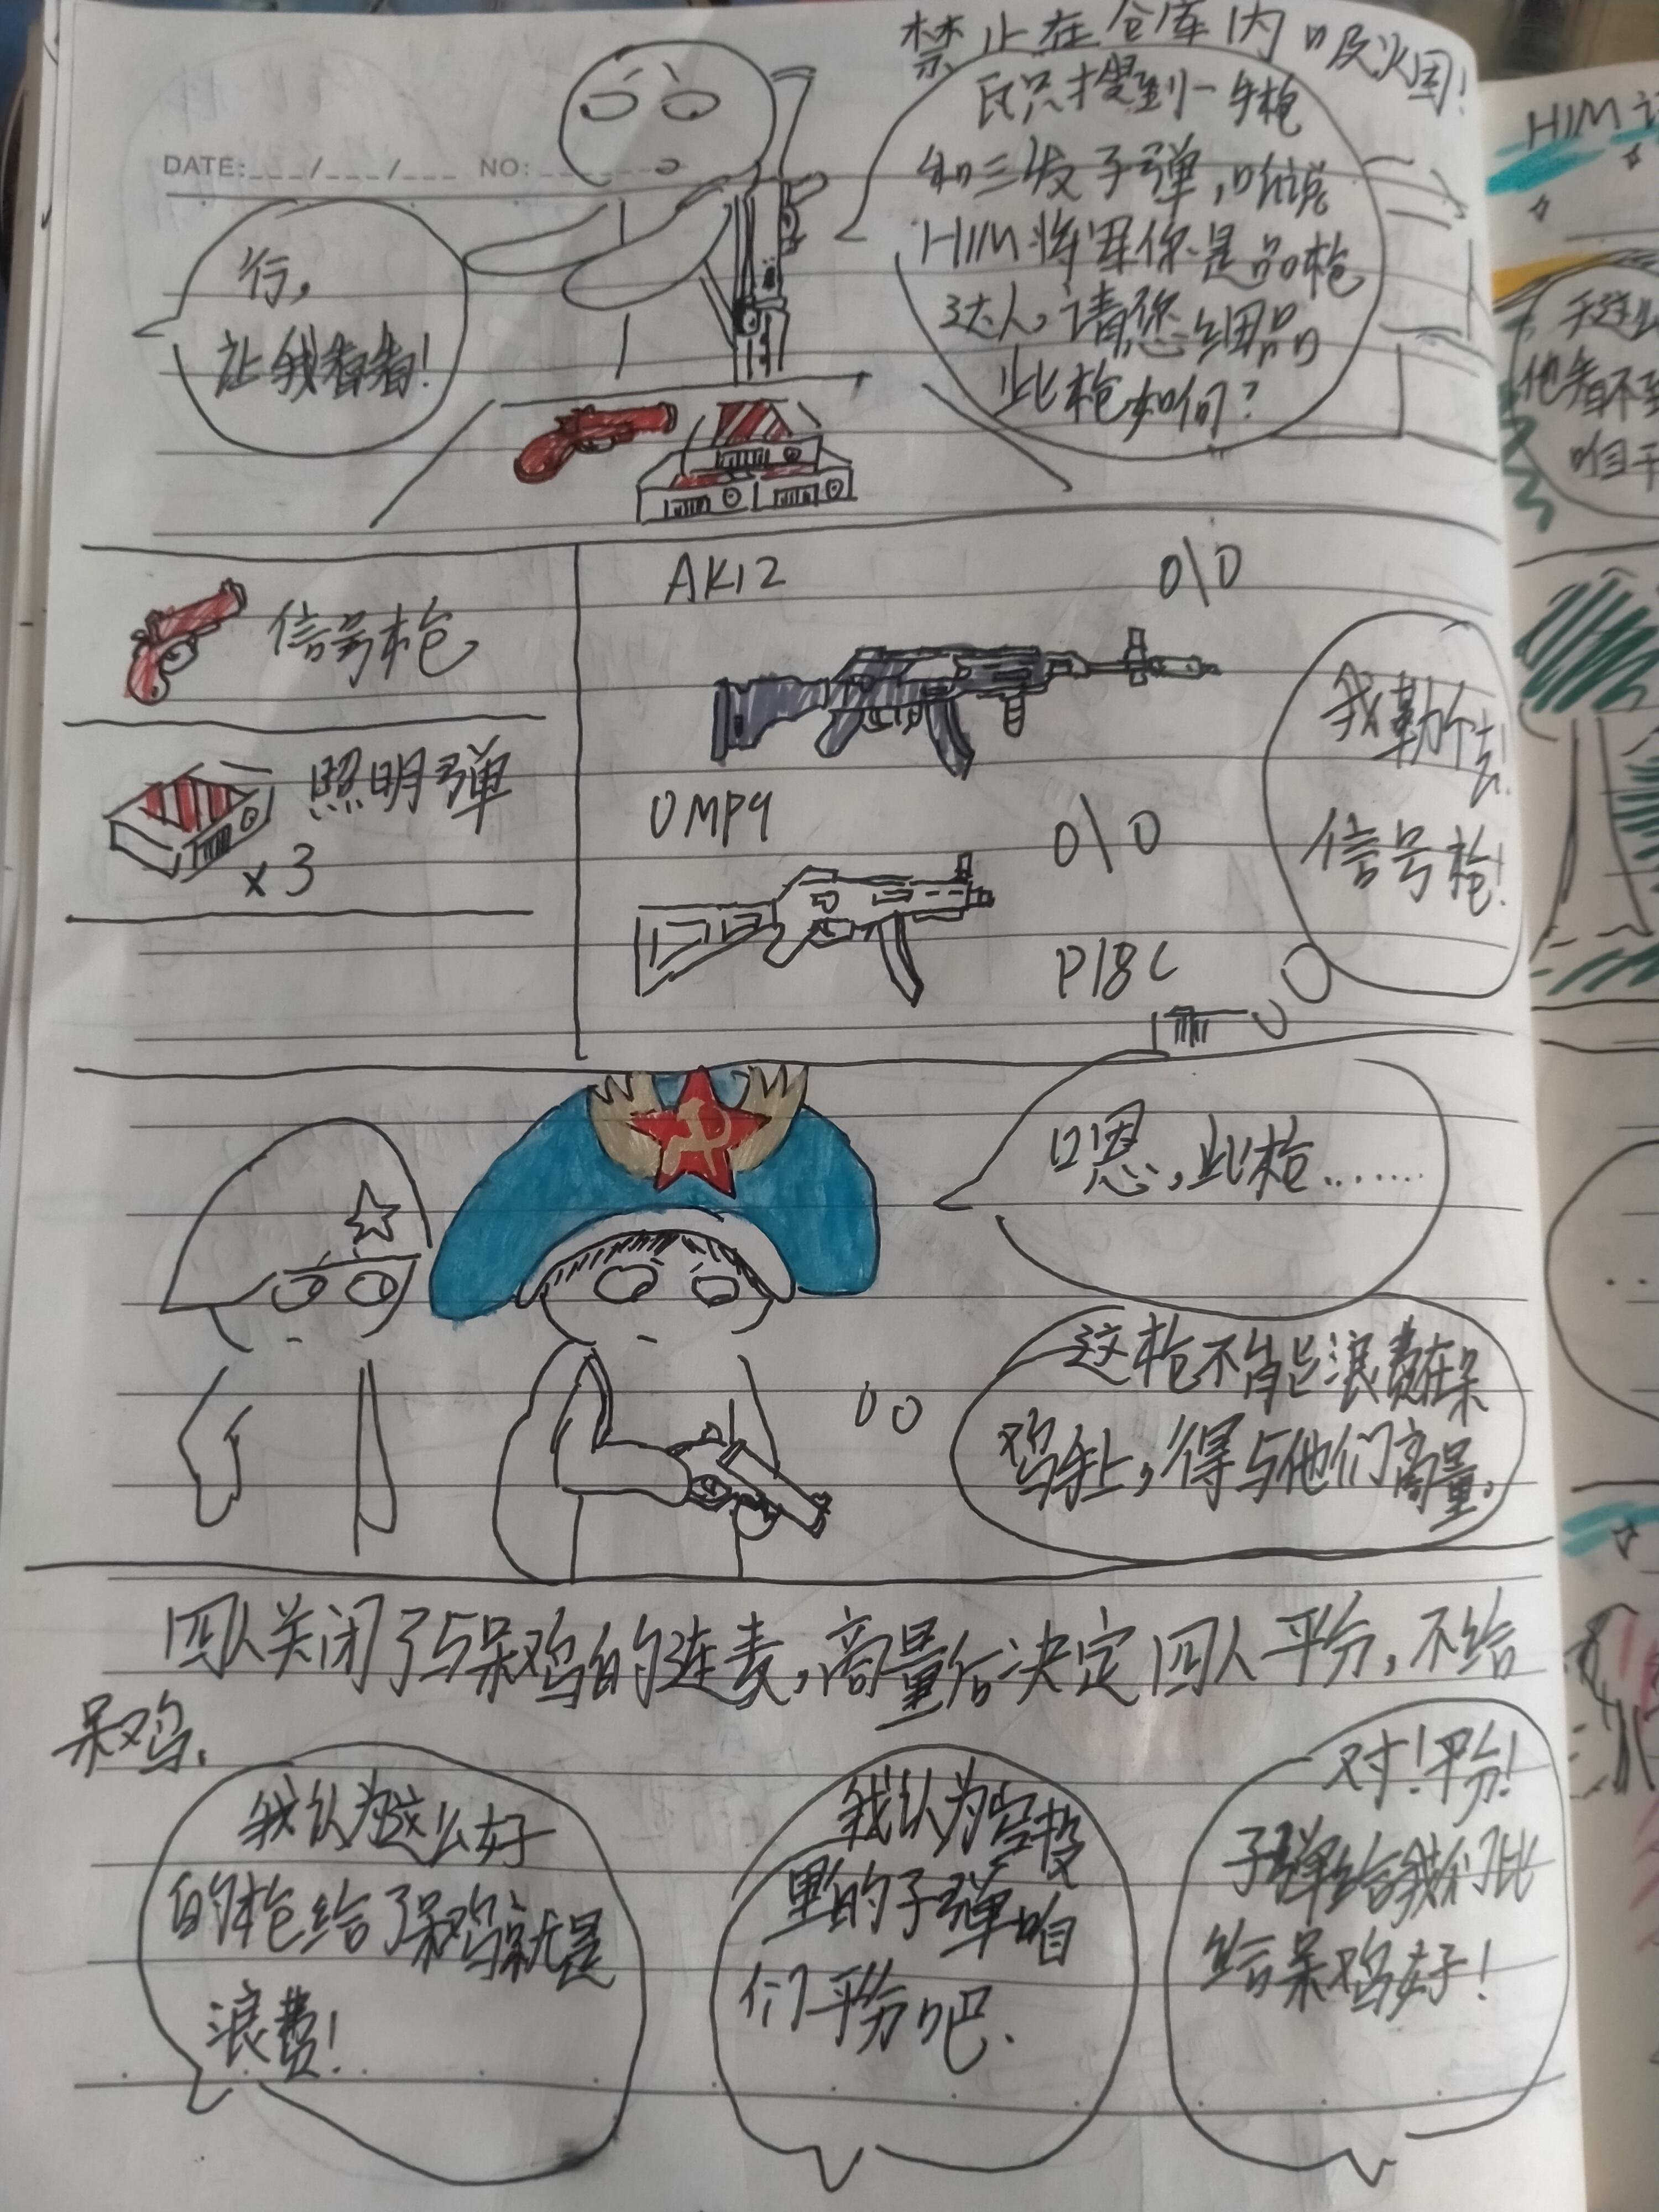 禁止在仓库内吸烟!
DATE:___/___/___ NO:
我只才搜到一个枪
和三发子弹,听说
HIM将军你是品枪
达人,请您细品
此枪如何?
行,
让我看看!
信号枪
照明弹
x3
AK12 0\0
UMP9 0\0
P18C
我勒个去!
信号枪!
嗯,此枪.......
这枪不能浪费在呆
鸡手上,得与他们商量。
四人关闭了与呆鸡的连麦,商量后决定四人平分,不给
呆鸡.
我认为这么好
的枪给了呆鸡就是
浪费!
我认为空投
里的子弹咱
们平分吧.
对!平分!
子弹给我们比
给呆鸡好!
HIM
他看不到
咱